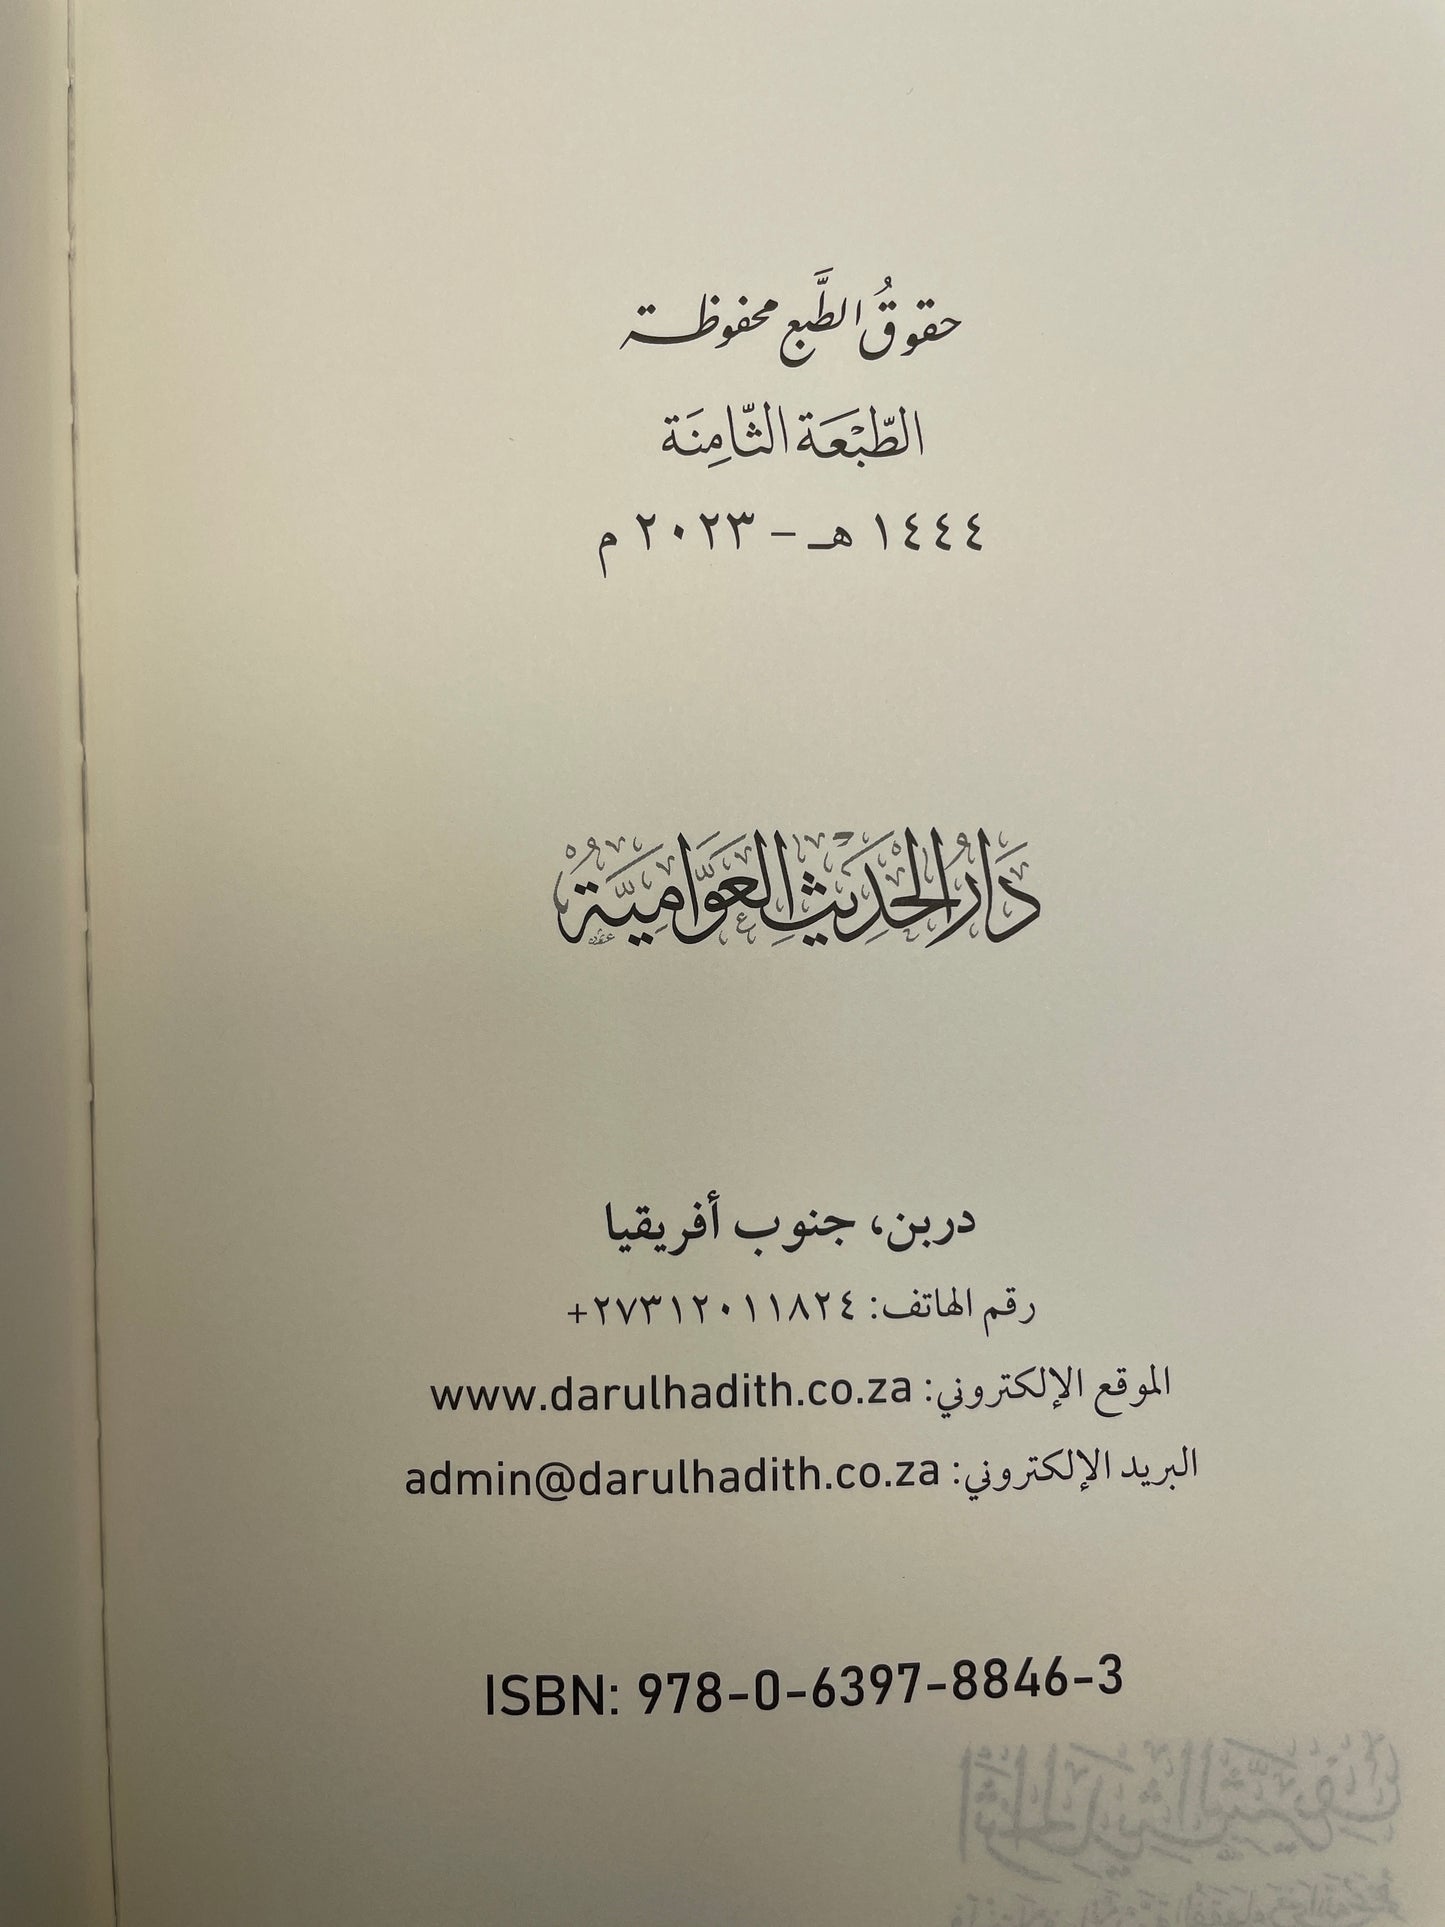 حقوقُ الطَّبع محفوظة
الطّبْعَة الثّامِنَة
١٤٤٤ هـ – ٢٠٢٣ م
دَارُ الْحَدِيْثِ الْعَوَّامِيَّةُ
دربن، جنوب أفريقيا
رقم الهاتف: ٢٧٣١٢٠١١٨٢٤+
الموقع الإلكتروني: www.darulhadith.co.za
البريد الإلكتروني: admin@darulhadith.co.za
ISBN: 978-0-6397-8846-3